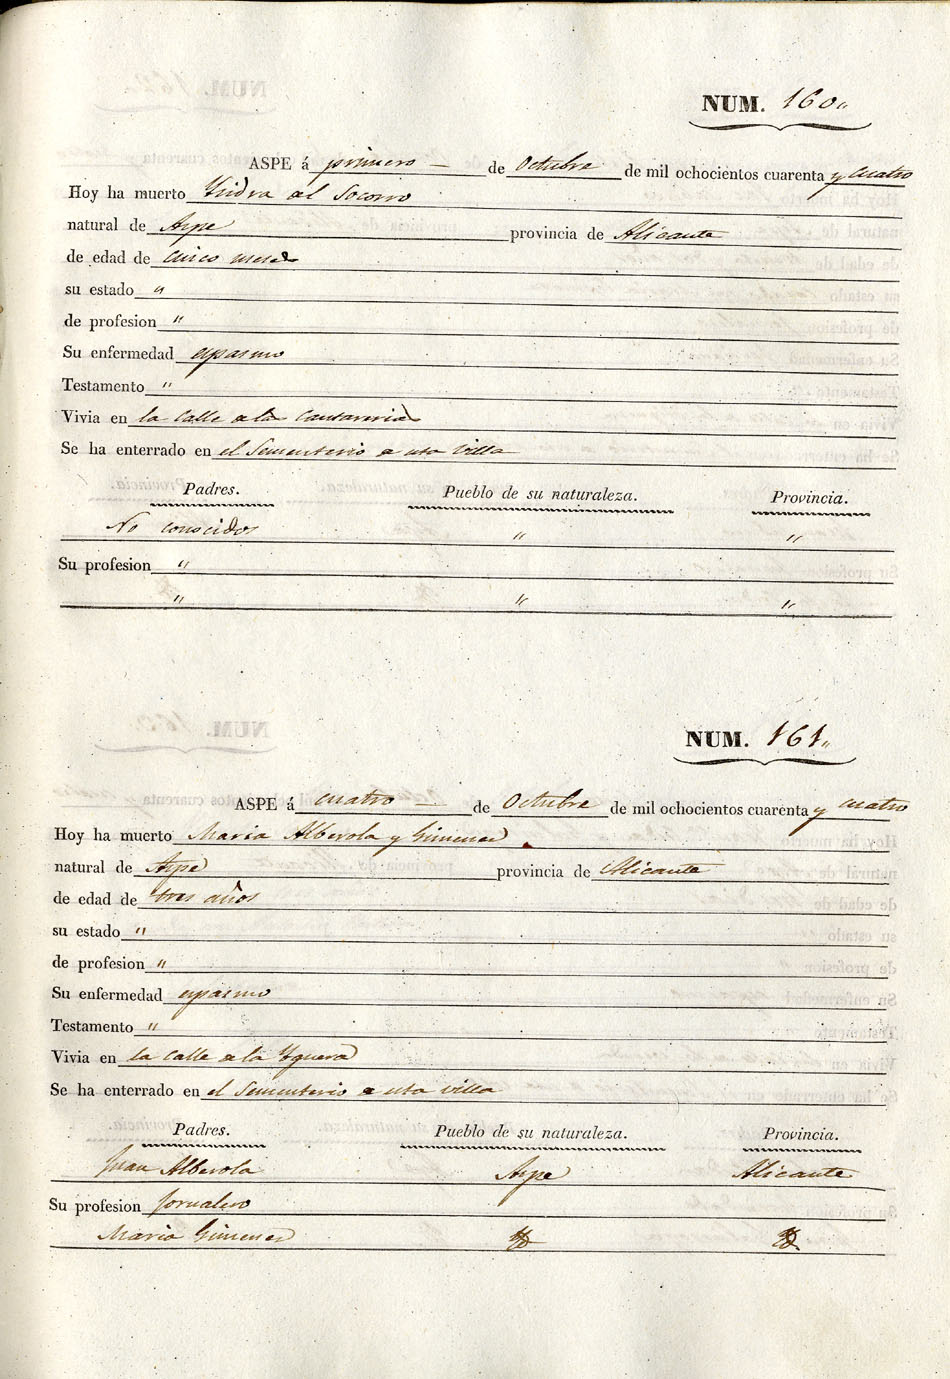 NUM. 160„
ASPE á primero — de Octubre de mil ochocientos cuarenta y cuatro
Hoy ha muerto Ysidra del Socorro
natural de Aspe provincia de Alicante
de edad de cinco meses
su estado „
de profesion „
Su enfermedad espasmo
Testamento „
Vivia en la calle de la Cantareria
Se ha enterrado en el Sementerio de esta villa
Padres. Pueblo de su naturaleza. Provincia.
No conocidos „ „
Su profesion „
„ „ „
NUM. 161„
ASPE á cuatro — de Octubre de mil ochocientos cuarenta y cuatro
Hoy ha muerto Maria Alberola y Gimenez
natural de Aspe provincia de Alicante
de edad de tres años
su estado „
de profesion „
Su enfermedad espasmo
Testamento „
Vivia en la calle de la Yguera
Se ha enterrado en el Sementerio de esta villa
Padres. Pueblo de su naturaleza. Provincia.
Juan Alberola Aspe Alicante
Su profesion Jornalero
Maria Gimenez